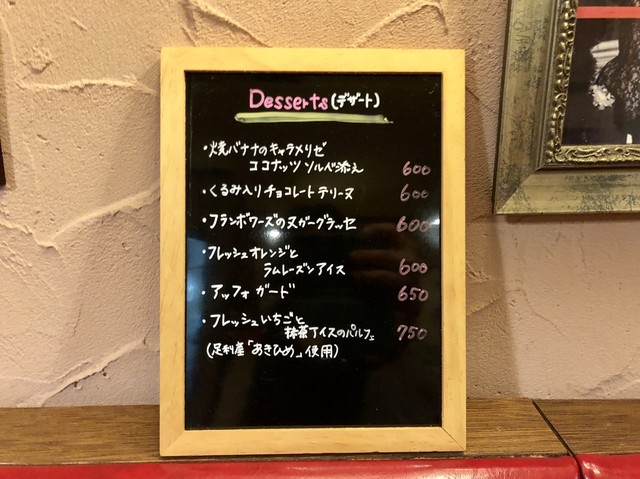 Desserts(デザート)
・焼バナナのキャラメリゼ
ココナッツ ソルベ添え 600
・くるみ入りチョコレートテリーヌ 600
・フランボワーズのヌガーグラッセ 600
・フレッシュオレンジと
ラムレーズンアイス 600
・アッフォガード 650
・フレッシュいちごと
抹茶アイスのパルフェ 750
(足利産「あきひめ」使用)